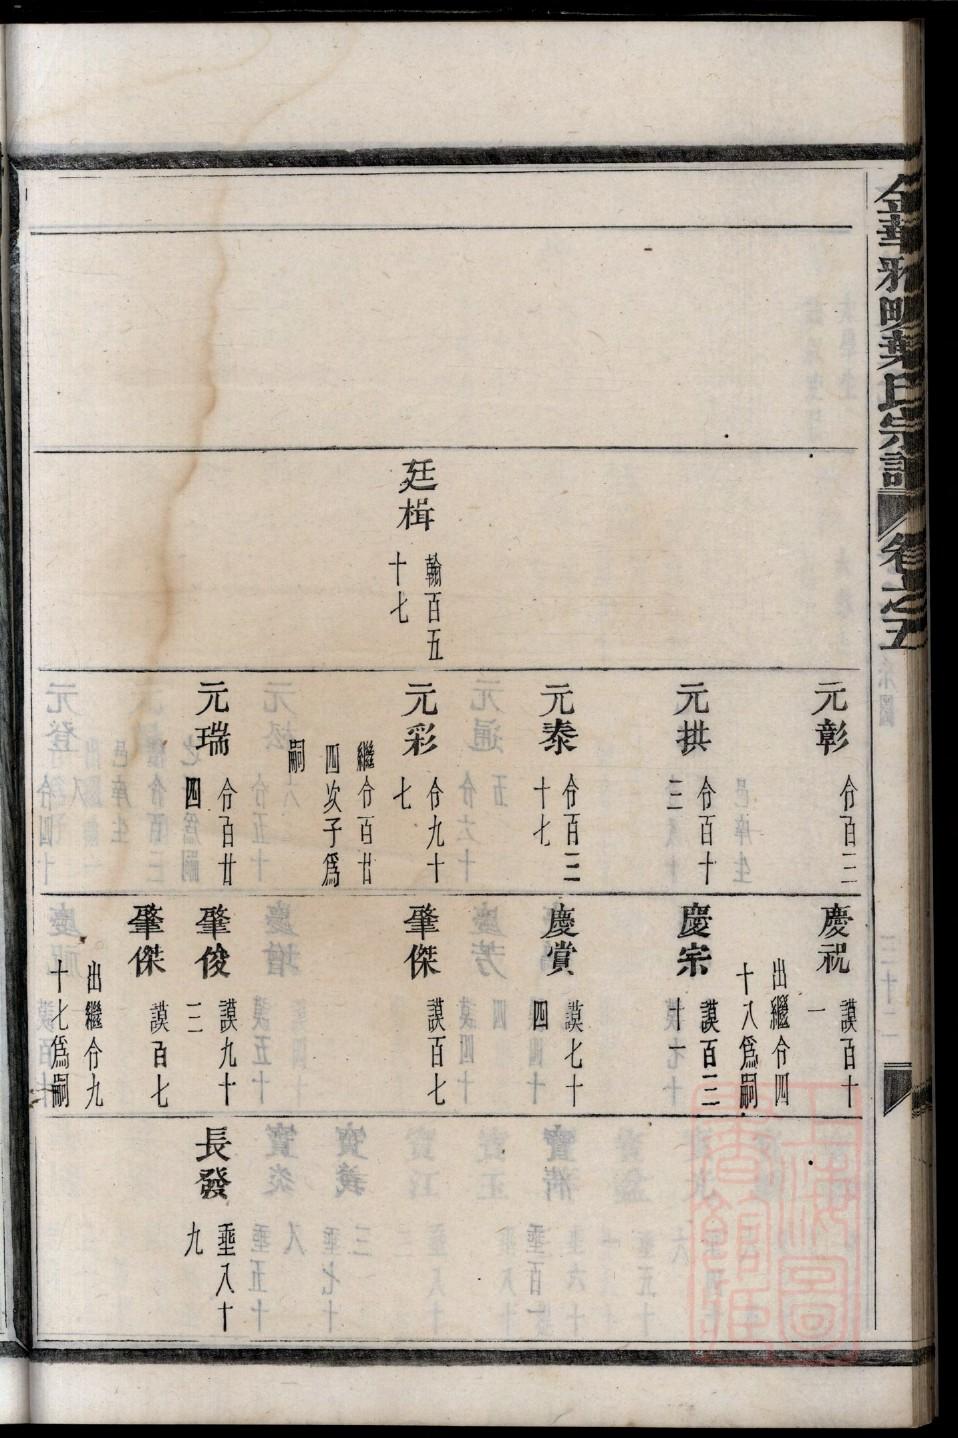 金華雅畈葉氏宗譜
卷之五
廷楫
翰百五
十七
元彰
元拱
元泰
元彩
元瑞
仱百二
仱百十
三
仱百三
十七
仱九十
七
繼仱百廿
四次子爲
嗣
仱百廿
四
慶祝
謨百十
一
出繼仱四
十八爲嗣
慶宗
謨百三
十一
慶賞
謨七十
四
肇傑
謨百七
肇俊
謨九十
二
肇傑
謨百七
出繼仱九
十七爲嗣
長發
埀八十
九